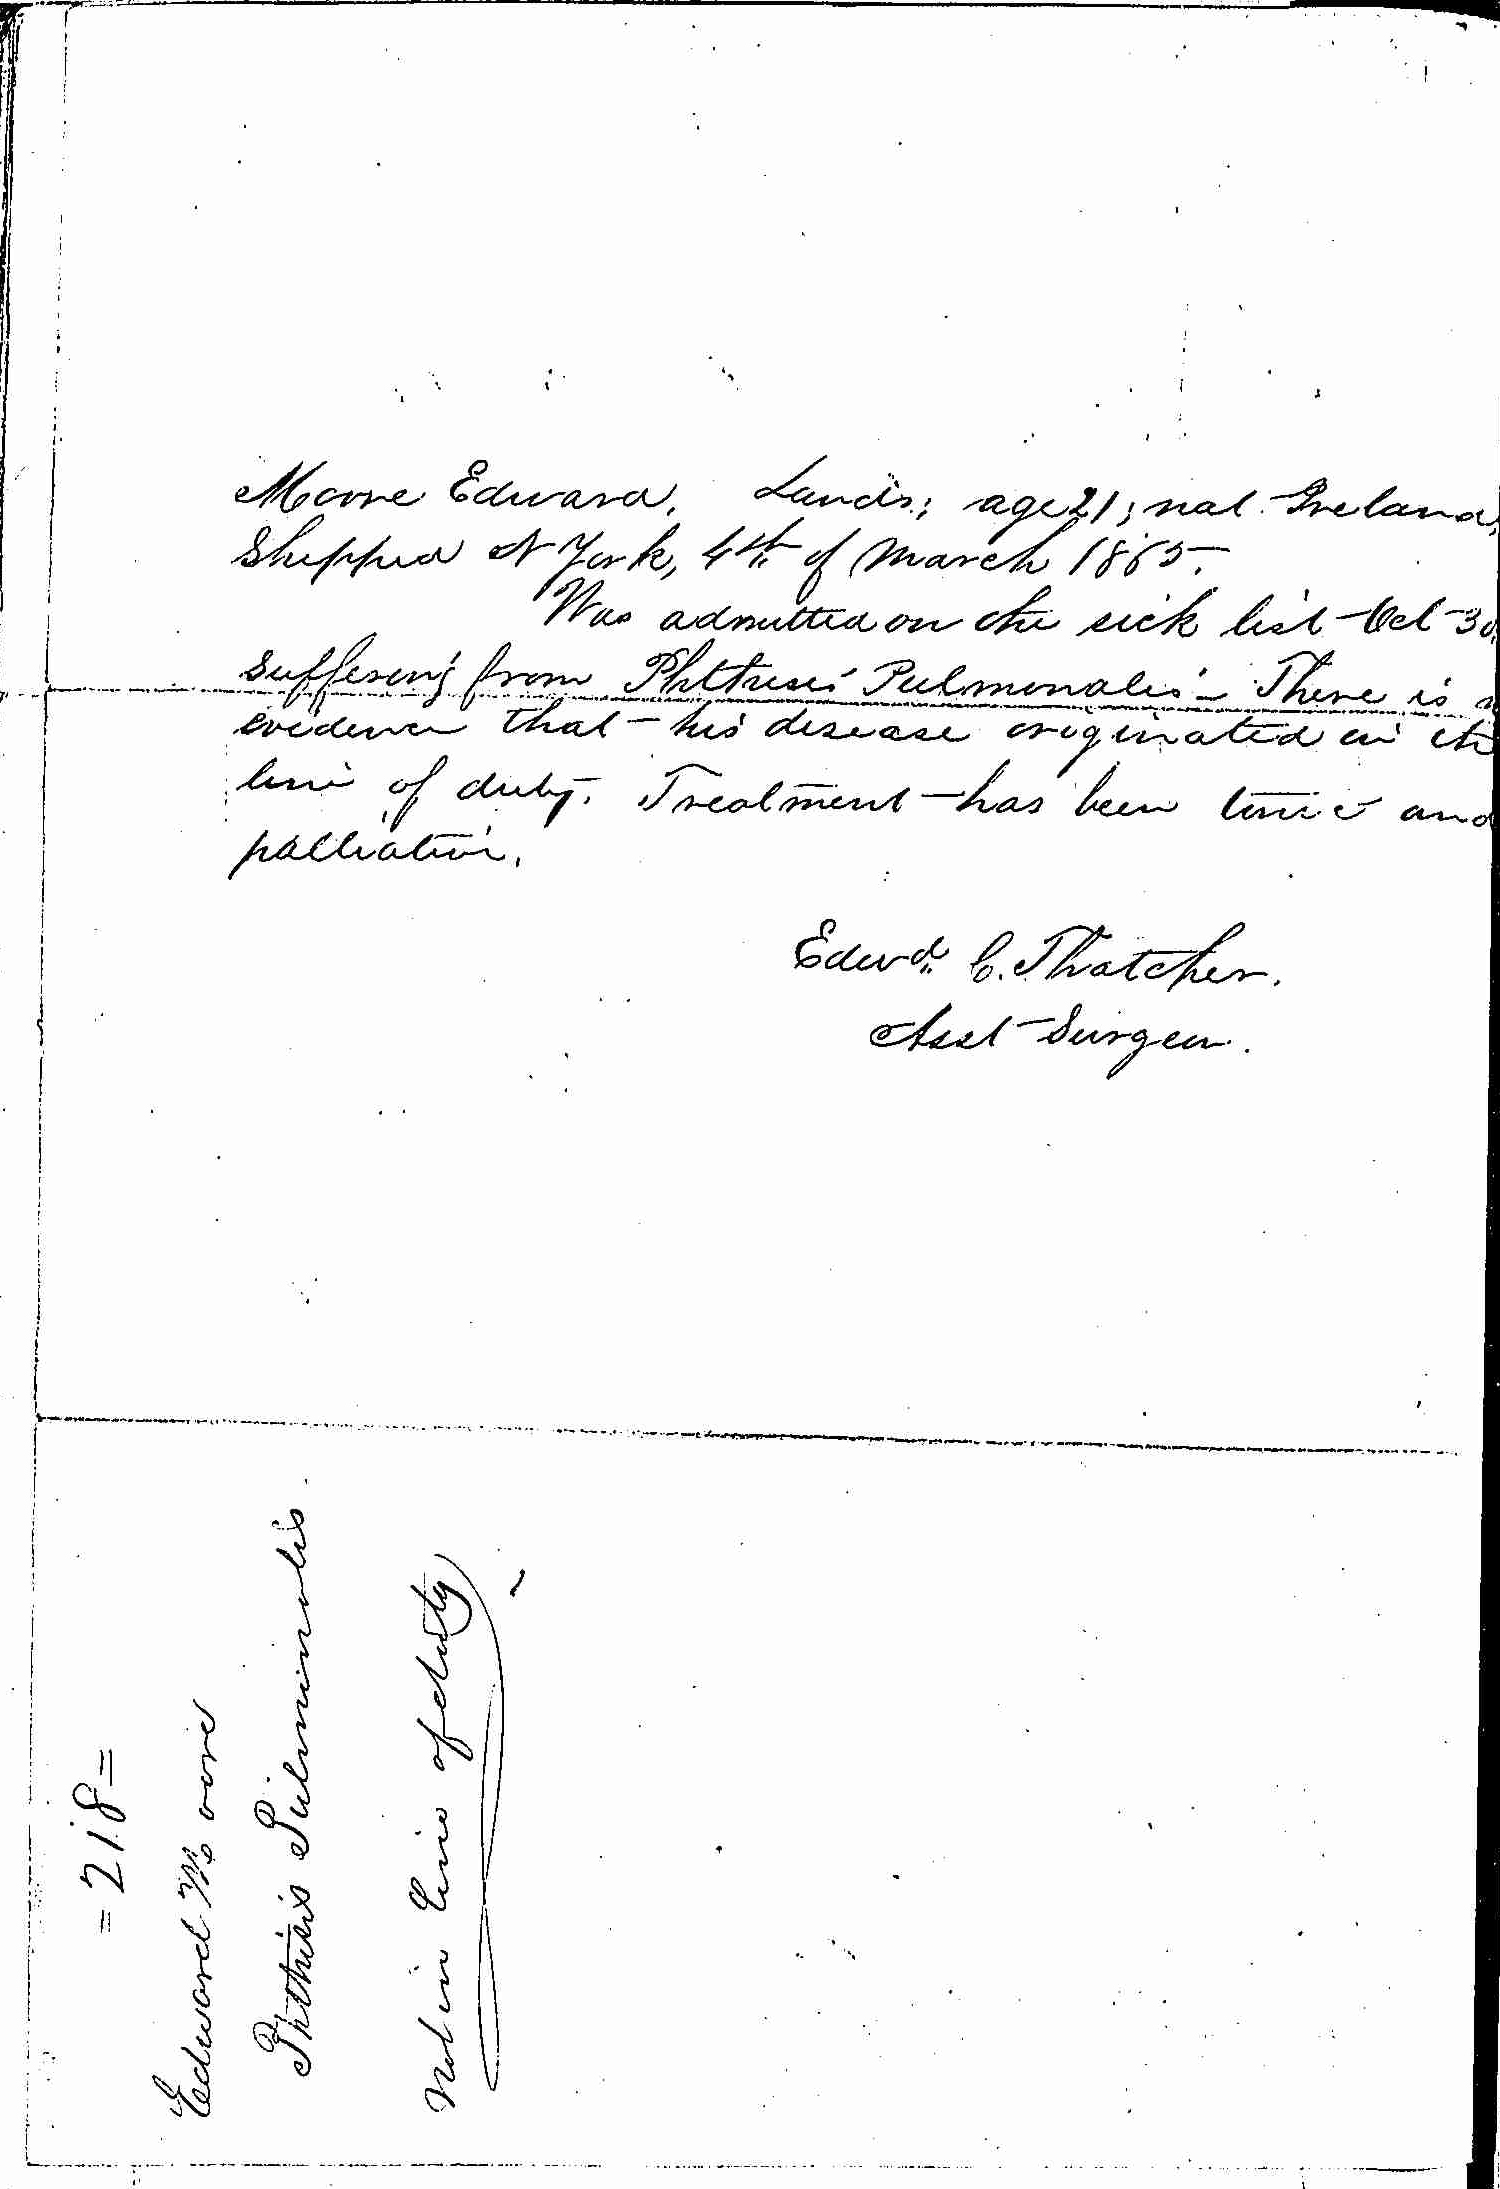 Moore Edward. Lands.; age 21; nat. Ireland,
Shipped N York, 4th of March 1865.
Was admitted on the sick list Oct 30
suffering from Phthisis Pulmonalis - There is n
evidence that his disease originated in the
line of duty. Treatment has been tonic and
palliative.
Edwd. C. Thatcher.
Asst Surgeon.
= 218 =
Edward Moore
Phthisis Pulmonalis.
Not in Line of duty